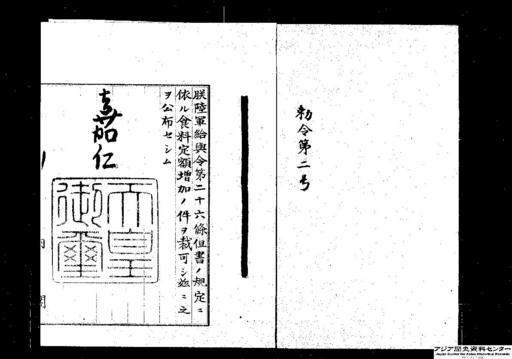 勅令第二号
朕陸軍給與令第二十六條但書ノ規定ニ
依ル食料定額増加ノ件ヲ裁可シ茲ニ之
ヲ公布セシム
嘉仁
天皇
御璽
アジア歴史資料センター
Japan Center for Asian Historical Records